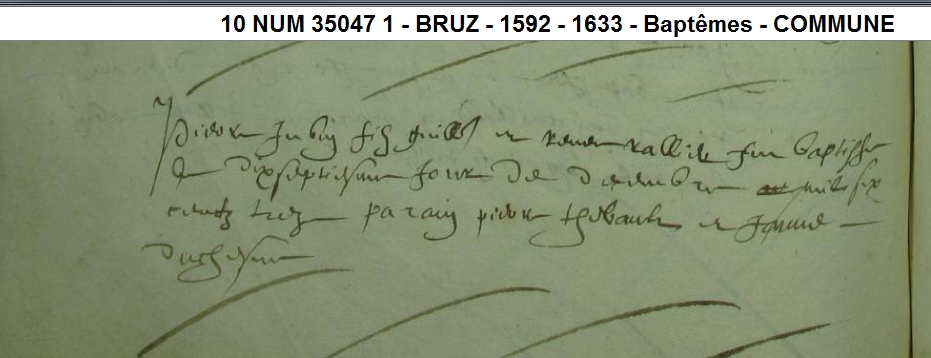 10 NUM 35047 1 - BRUZ - 1592 - 1633 - Baptêmes - COMMUNE
pierre Jubin filz guill et rallier fut baptisse
le dixseptiesme Jour de decembre mil six
centz treze parain pierre thebault et Janne
duchesne